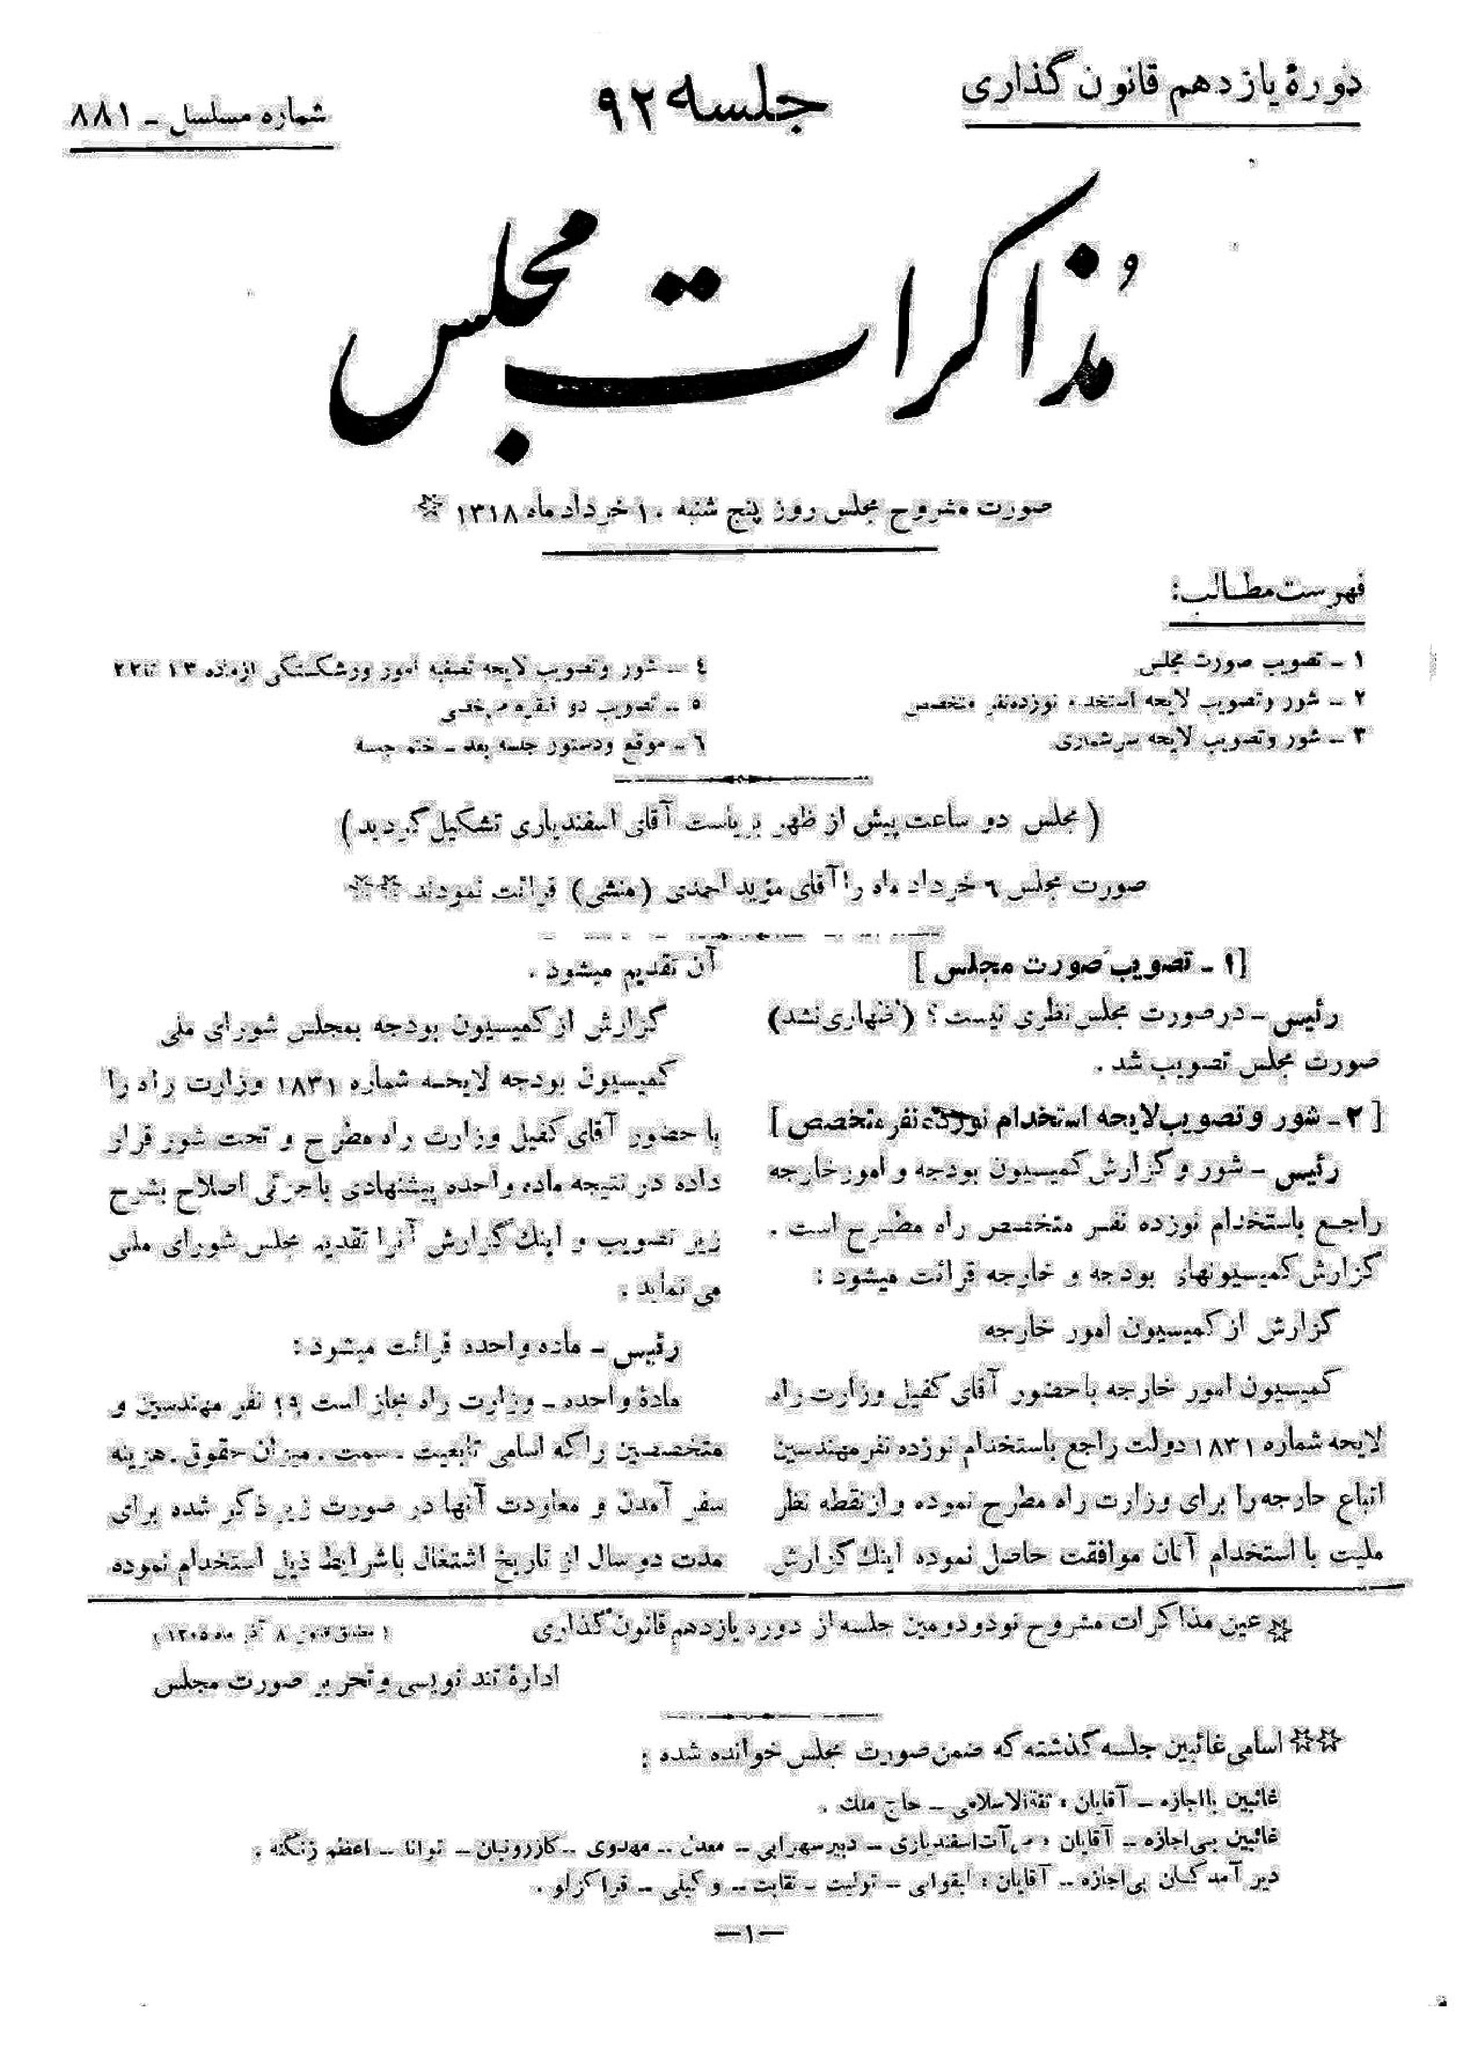 دورهٔ یازدهم قانون گذاری
جلسه ۹۲
شماره مسلسل ـ ۸۸۱
مذاکرات مجلس
صورت مشروح مجلس روز پنج شنبه ۱۰ خرداد ماه ۱۳۱۸ ☆
فهرست مطالب:
۱ ـ تصویب صورت مجلس
۲ ـ شور و تصویب لایحه استخدام نوزده نفر متخصص
۳ ـ شور و تصویب لایحه سرشماری
۴ ـ شور و تصویب لایحه تصفیه امور ورشکستگی از ماده ۱۳ تا ۲۲
۵ ـ تصویب دو فقره مرخصی
۶ ـ موقع و دستور جلسه بعد ـ ختم جلسه
( مجلس دو ساعت پیش از ظهر بریاست آقای اسفندیاری تشکیل گردید )
صورت مجلس ۶ خرداد ماه را آقای مؤید احمدی (منشی) قرائت نمودند ☆☆
[ ۱ ـ تصویب صورت مجلس ]
رئیس ـ در صورت مجلس نظری نیست؟ (اظهاری نشد)
صورت مجلس تصویب شد .
[ ۲ ـ شور و تصویب لایحه استخدام نوزده نفر متخصص ]
رئیس ـ شور و گزارش کمیسیون بودجه و امور خارجه
راجع باستخدام نوزده نفر متخصص راه مطرح است .
گزارش کمیسیونهای بودجه و خارجه قرائت میشود :
گزارش از کمیسیون امور خارجه
کمیسیون امور خارجه با حضور آقای کفیل وزارت راه
لایحه شماره ۱۸۳۱ دولت راجع باستخدام نوزده نفر مهندسین
اتباع خارجه را برای وزارت راه مطرح نموده و از نقطه نظر
ملیت با استخدام آنان موافقت حاصل نموده اینك گزارش
آن تقدیم میشود .
گزارش از کمیسیون بودجه بمجلس شورای ملی
کمیسیون بودجه لایحه شماره ۱۸۳۱ وزارت راه را
با حضور آقای کفیل وزارت راه مطرح و تحت شور قرار
داده در نتیجه ماده واحده پیشنهادی با جزئی اصلاح بشرح
زیر تصویب و اینك گزارش آنرا تقدیم مجلس شورای ملی
می نماید .
رئیس ـ ماده واحده قرائت میشود :
مادهٔ واحده ـ وزارت راه مجاز است ۱۹ نفر مهندسین و
متخصصین را که اسامی تابعیت ـ سمت ـ میزان حقوق ـ هزینه
سفر آمدن و معاودت آنها در صورت زیر ذکر شده برای
مدت دو سال از تاریخ اشتغال با شرایط ذیل استخدام نموده
☆ عین مذاکرات مشروح نود و دومین جلسه از دوره یازدهم قانون گذاری
( مطابق قانون ۸ آذر ماه ۱۳۰۵ )
ادارهٔ تند نویسی و تحریر صورت مجلس
☆☆ اسامی غائبین جلسه گذشته که ضمن صورت مجلس خوانده شده :
غائبین با اجازه ـ آقایان : ثقةالاسلامی ـ حاج ملك .
غائبین بی اجازه ـ آقایان : مرآت اسفندیاری ـ دبیر سهرابی ـ معدل ـ مهدوی ـ کازرونیان ـ توانا ـ اعظم زنگنه .
دیر آمدگان بی اجازه ـ آقایان : لیقوانی ـ تولیت ـ نقابت ـ وکیلی ـ قراگزلو .
—۱—